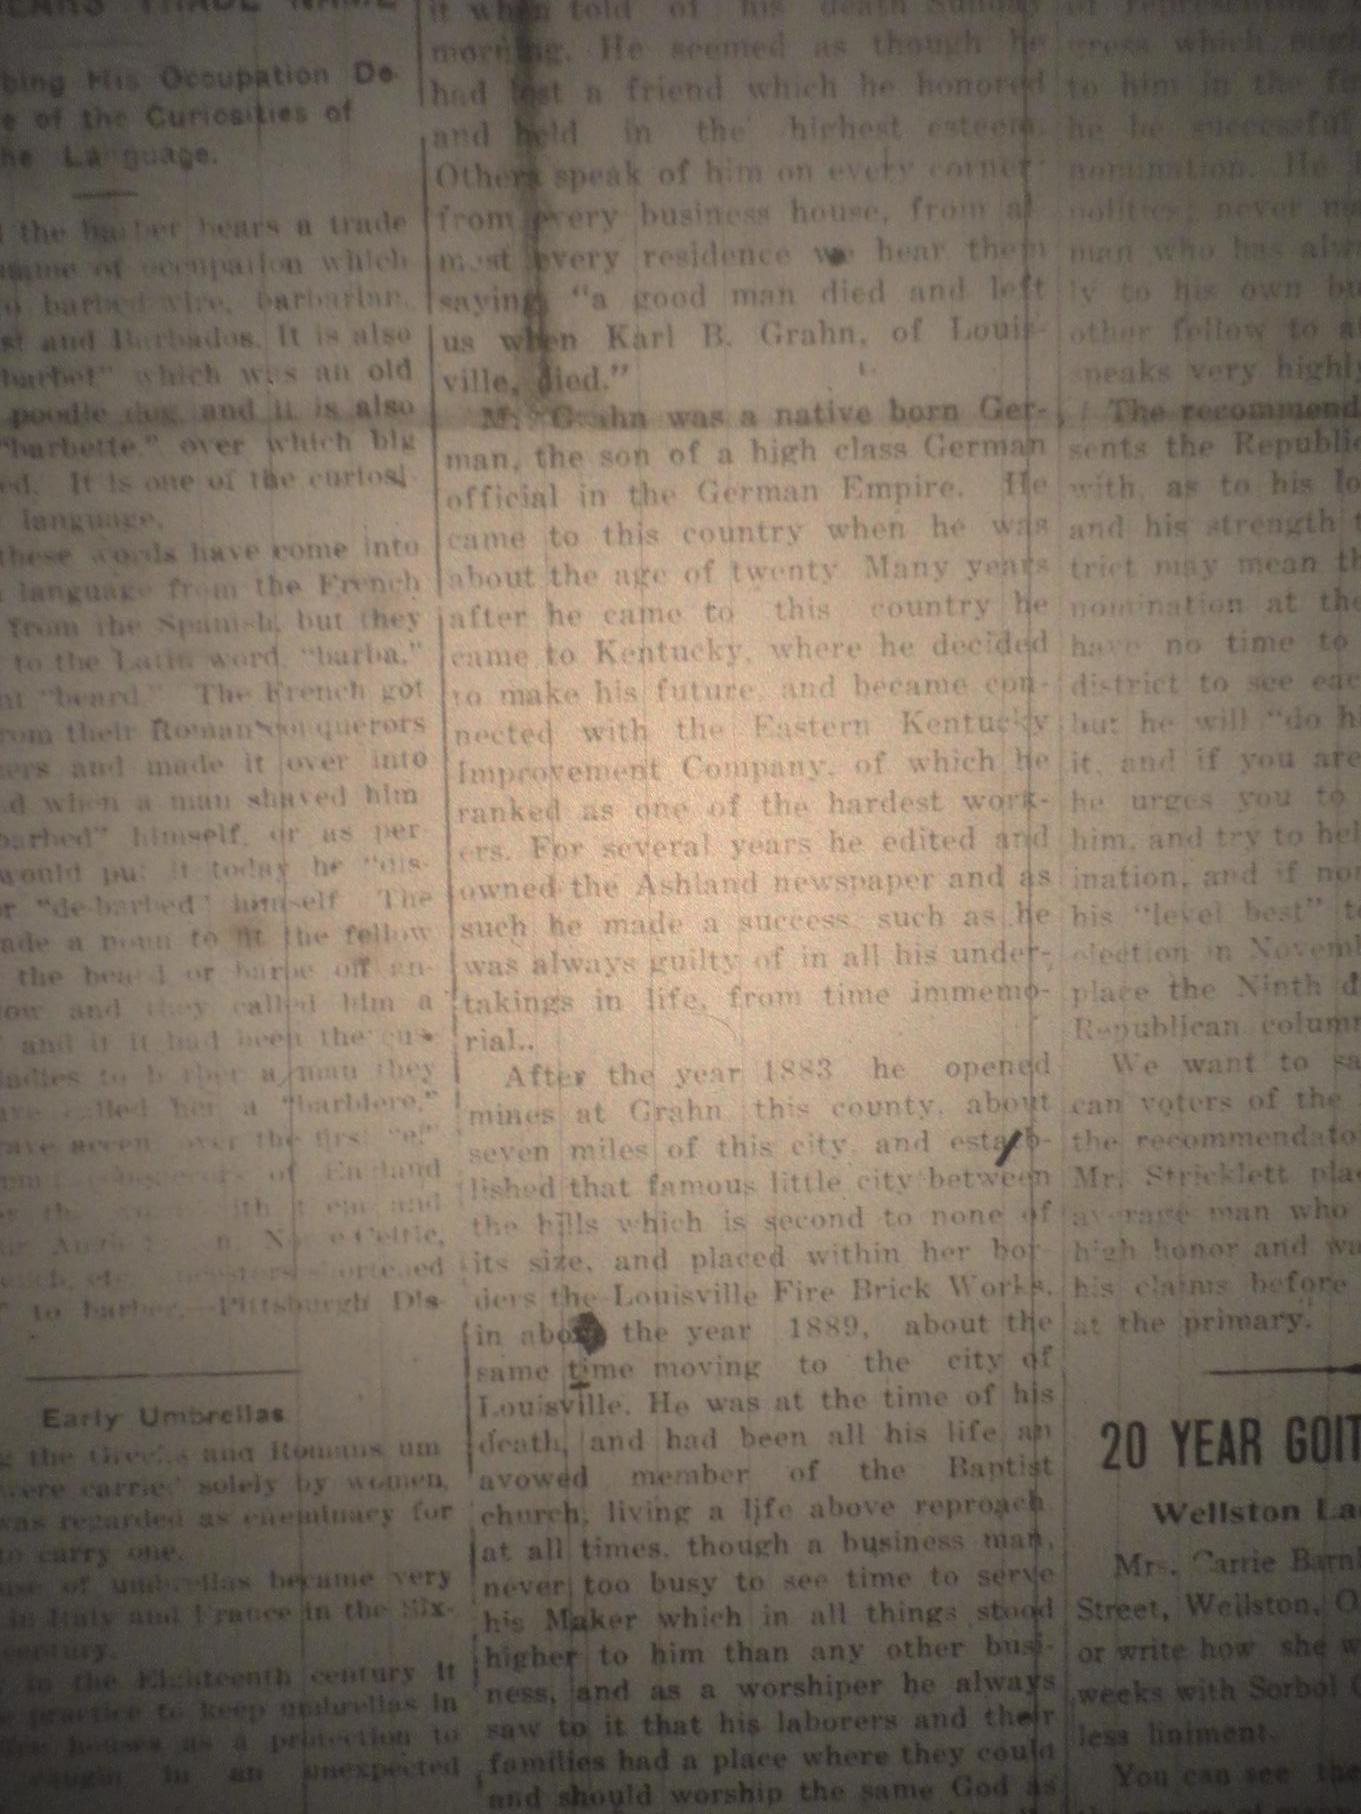 EARS TRADE NAME
bing His Occupation De-
e of the Curiosities of
he Language.
the barber bears a trade
name of occupation which
o barbed wire, barbarian,
st and Barbados. It is also
barbet" which was an old
poodle dog, and it is also
"barbette," over which big
ed. It is one of the curiosi-
language.
these words have come into
language from the French
from the Spanish, but they
to the Latin word "barba,"
nt "beard." The French got
rom their Roman conquerors
ers and made it over into
d when a man shaved him
barbed" himself, or as per
would put it today he "dis-
or "de-barbed" himself. The
ade a noun to fit the fellow
the beard or barbe off an-
ow and they called him a
and if it had been the cus-
ladies to barber a man they
ave called her a "barbiere,"
rave accent over the first "e."
of England
and
Celtic,
etc. ancestors shortened
" to barber.—Pittsburgh Dis-
Early Umbrellas
g the Greeks and Romans um
were carried solely by women,
was regarded as effeminacy for
to carry one.
use of umbrellas became very
in Italy and France in the Six-
century.
in the Eighteenth century it
e practice to keep umbrellas in
houses as a protection to
caught in an unexpected
it when told of his death Sunday
morning. He seemed as though he
had lost a friend which he honored
and held in the highest esteem.
Others speak of him on every corner
from every business house, from al-
most every residence we hear them
saying, "a good man died and left
us when Karl B. Grahn, of Louis-
ville, died."
Mr. Grahn was a native born Ger-
man, the son of a high class German
official in the German Empire. He
came to this country when he was
about the age of twenty. Many years
after he came to this country he
came to Kentucky, where he decided
to make his future, and became con-
nected with the Eastern Kentucky
Improvement Company, of which he
ranked as one of the hardest work-
ers. For several years he edited and
owned the Ashland newspaper and as
such he made a success, such as he
was always guilty of in all his under-
takings in life, from time immemo-
rial..
After the year 1883 he opened
mines at Grahn this county, about
seven miles of this city, and estab-
lished that famous little city between
the hills which is second to none of
its size, and placed within her bor-
ders the Louisville Fire Brick Works,
in about the year 1889, about the
same time moving to the city of
Louisville. He was at the time of his
death, and had been all his life an
avowed member of the Baptist
church, living a life above reproach
at all times, though a business man,
never too busy to see time to serve
his Maker which in all things stood
higher to him than any other busi-
ness, and as a worshiper he always
saw to it that his laborers and their
families had a place where they could
and should worship the same God as
of representing
gress which might
to him in the fu
he be successful
nomination. He
politics, never
man who has alwa
ly to his own bu
other fellow to a
speaks very highly
The recommend
sents the Republic
with, as to his lo
and his strength t
trict may mean th
nomination at the
have no time to
district to see eac
but he will "do h
it, and if you are
he urges you to
him, and try to hel
ination, and if nom
his "level best" to
election in Novemb
place the Ninth d
Republican column
We want to sa
can voters of the
the recommendatio
Mr. Stricklett plac
average man who
high honor and wa
his claims before
at the primary.
20 YEAR GOIT
Wellston La
Mrs. Carrie Barn
Street, Wellston, O
or write how she w
weeks with Sorbol
less liniment.
You can see the